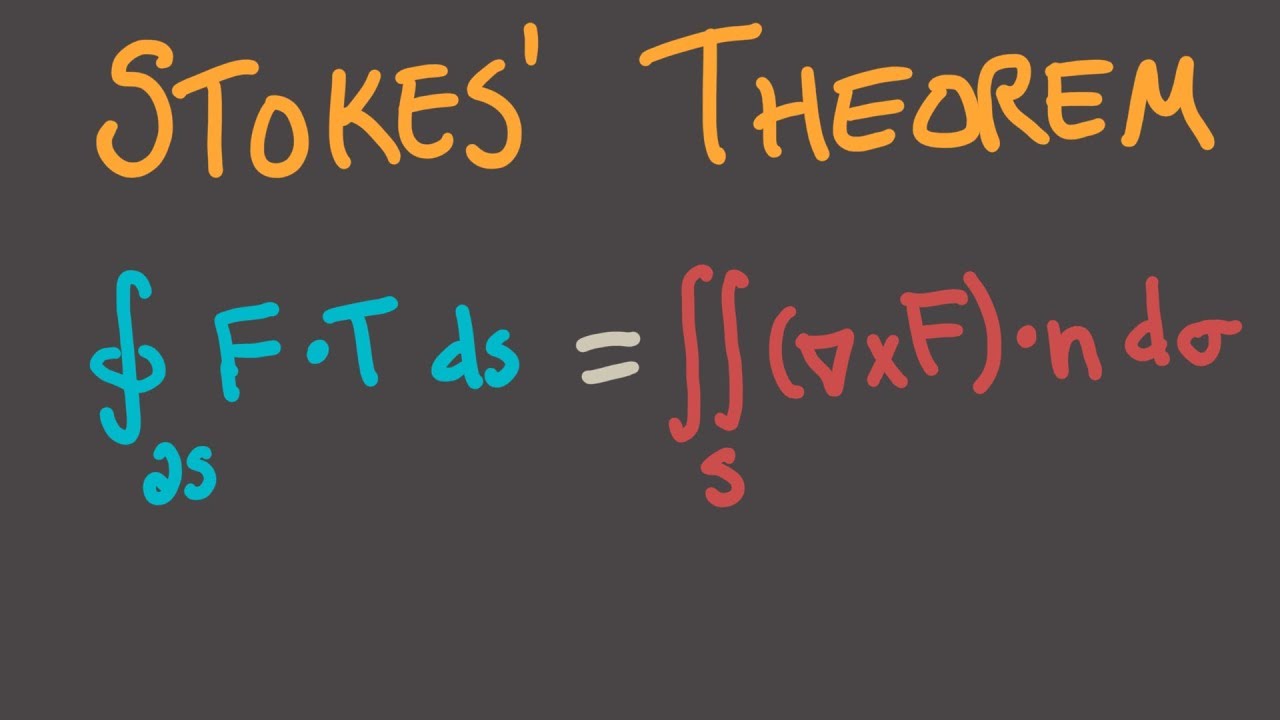 STOKES' THEOREM
∮ F·T ds = ∬ (∇xF)·n dσ
∂s S